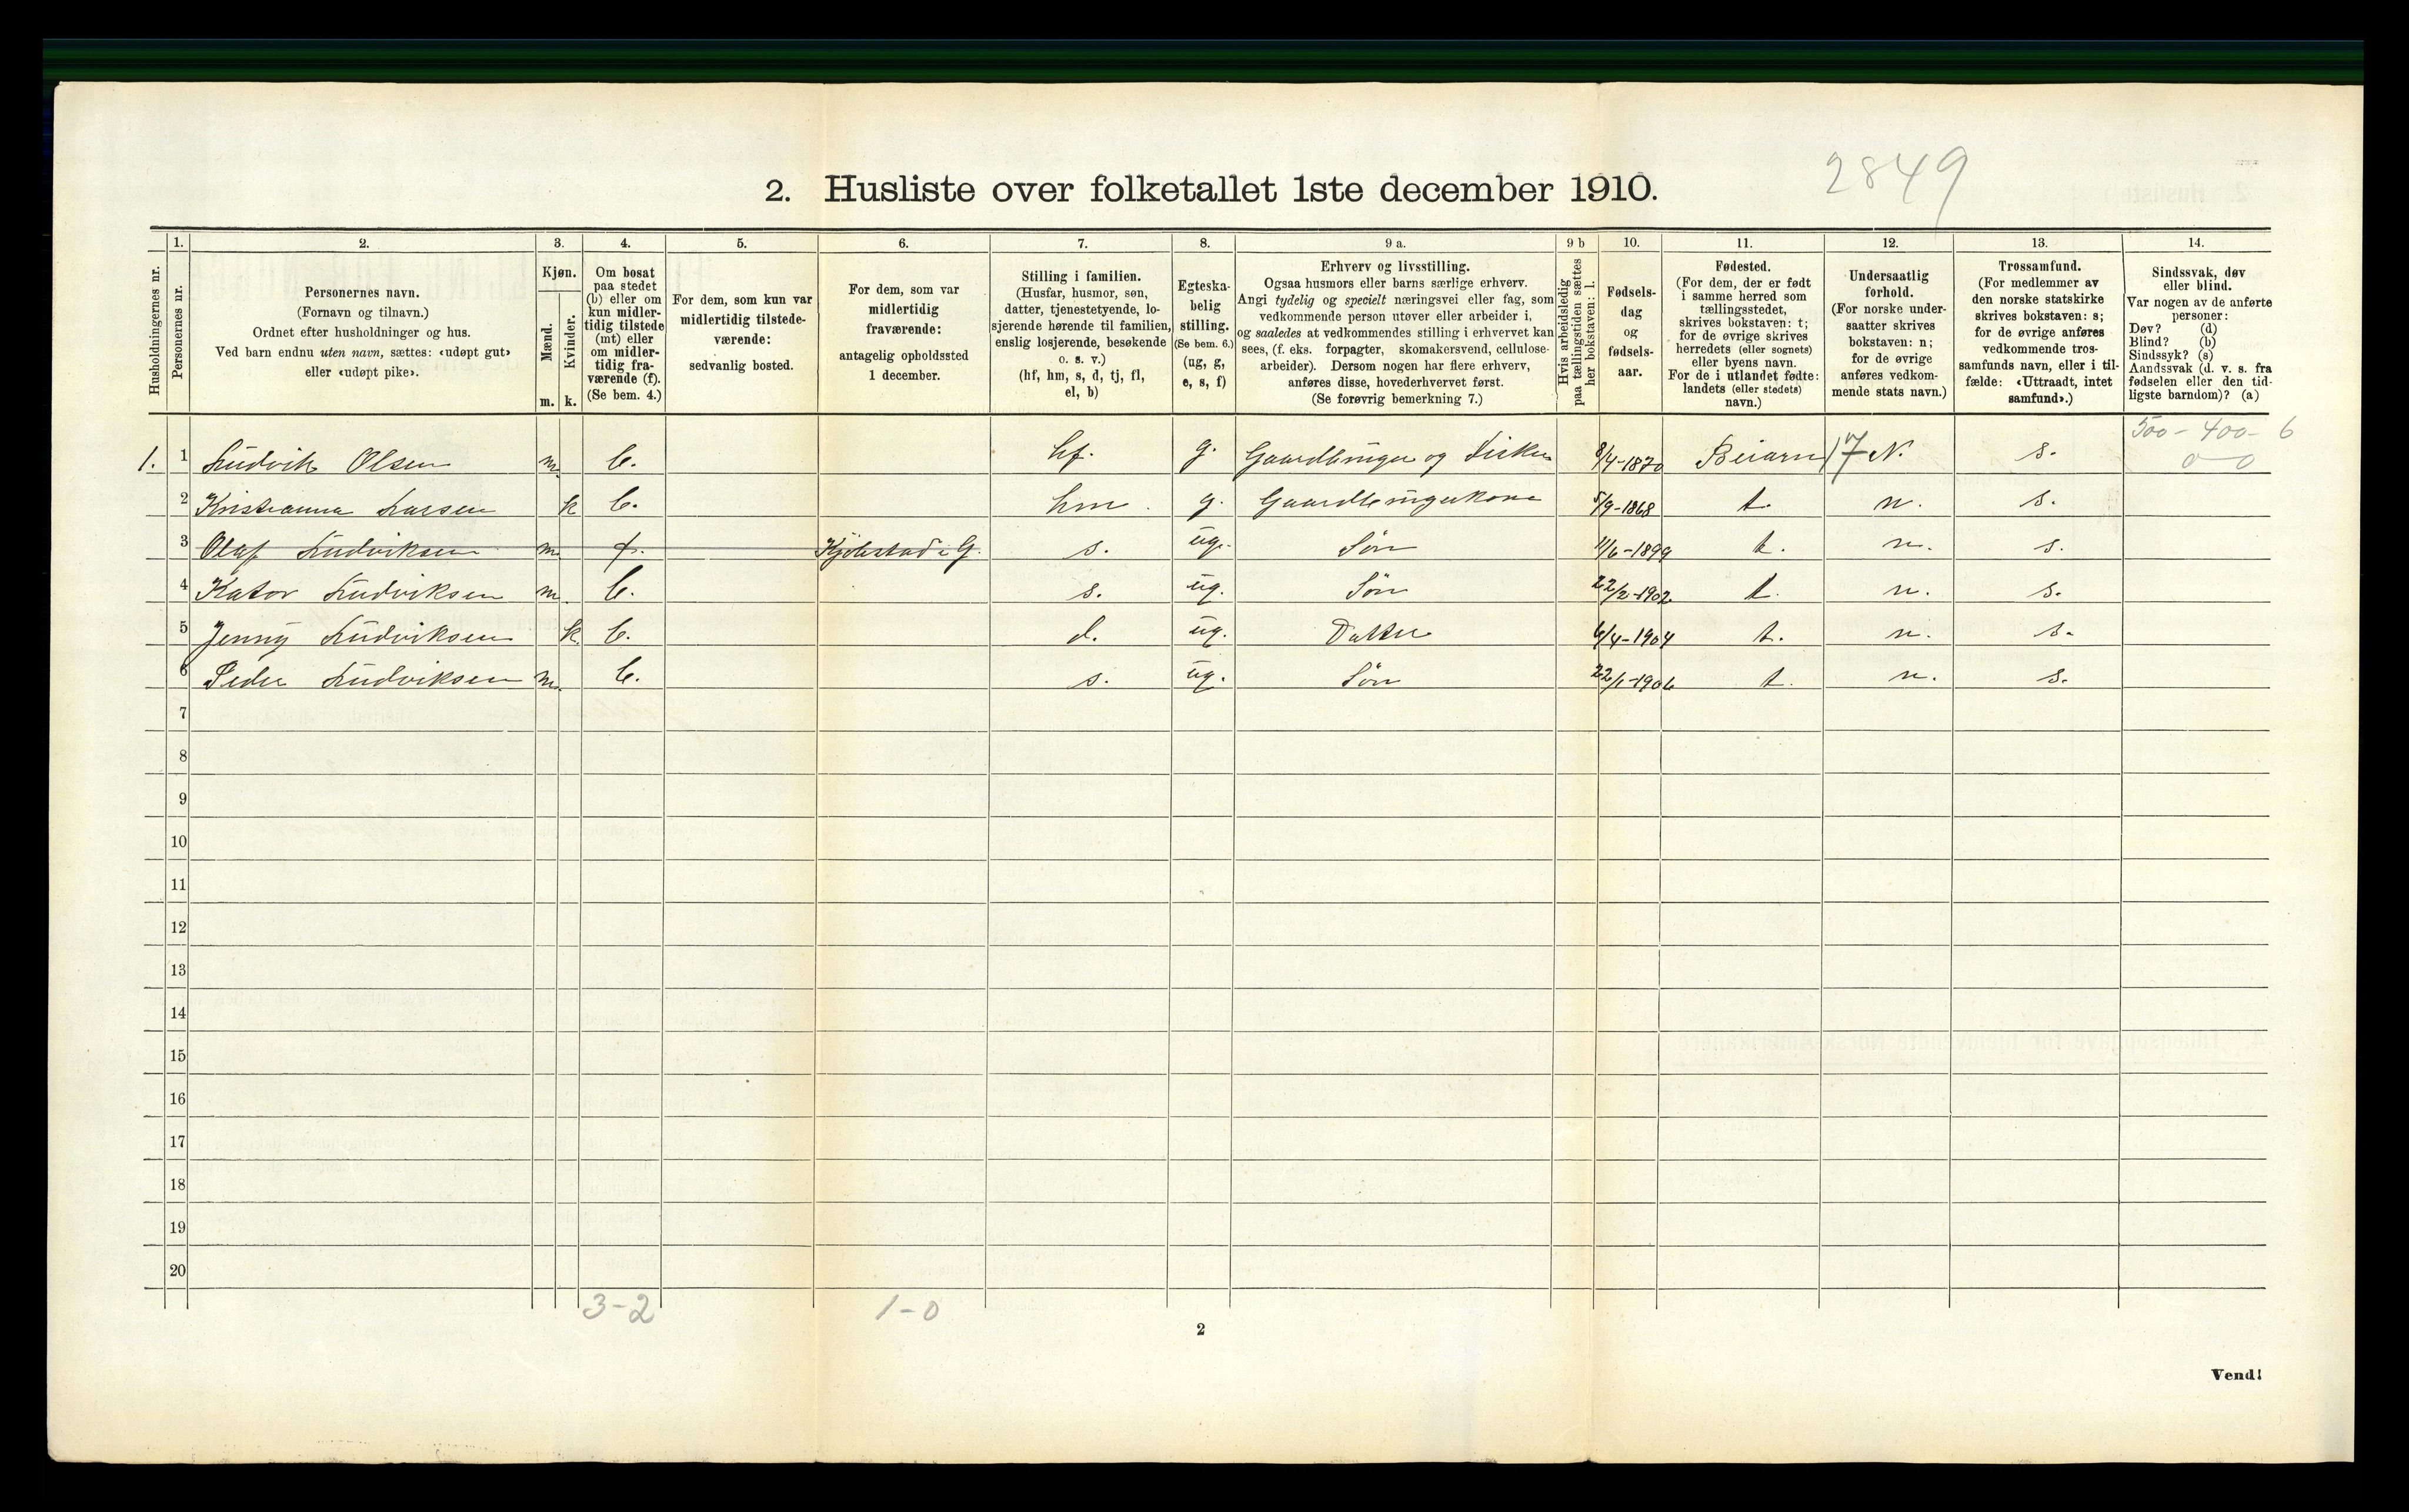 2. Husliste over folketallet 1ste december 1910.
2849
1. 2. 3. 4. 5. 6. 7. 8. 9 a. 9 b 10. 11. 12. 13. 14.
Husholdningernes nr.
Personernes nr.
Personernes navn.
(Fornavn og tilnavn.)
Ordnet efter husholdninger og hus.
Ved barn endnu uten navn, sættes: «udøpt gut»
eller «udøpt pike».
Kjøn.
Mænd.
Kvinder.
m. k.
Om bosat
paa stedet
(b) eller om
kun midler-
tidig tilstede
(mt) eller
om midler-
tidig fra-
værende (f).
(Se bem. 4.)
For dem, som kun var
midlertidig tilstede-
værende:
sedvanlig bosted.
For dem, som var
midlertidig
fraværende:
antagelig opholdssted
1 december.
Stilling i familien.
(Husfar, husmor, søn,
datter, tjenestetyende, lo-
sjerende hørende til familien,
enslig losjerende, besøkende
o. s. v.)
(hf, hm, s, d, tj, fl,
el, b)
Egteska-
belig
stilling.
(Se bem. 6.)
(ug, g,
e, s, f)
Erhverv og livsstilling.
Ogsaa husmors eller barns særlige erhverv.
Angi tydelig og specielt næringsvei eller fag, som
vedkommende person utøver eller arbeider i,
og saaledes at vedkommendes stilling i erhvervet kan
sees, (f. eks. forpagter, skomakersvend, cellulose-
arbeider). Dersom nogen har flere erhverv,
anføres disse, hovederhvervet først.
(Se forøvrig bemerkning 7.)
Hvis arbeidsledig
paa tællingstiden sættes
her bokstaven: l.
Fødsels-
dag
og
fødsels-
aar.
Fødested.
(For dem, der er født
i samme herred som
tællingsstedet,
skrives bokstaven: t;
for de øvrige skrives
herredets (eller sognets)
eller byens navn.
For de i utlandet fødte:
landets (eller stedets)
navn.)
Undersaatlig
forhold.
(For norske under-
saatter skrives
bokstaven: n;
for de øvrige
anføres vedkom-
mende stats navn.)
Trossamfund.
(For medlemmer av
den norske statskirke
skrives bokstaven: s;
for de øvrige anføres
vedkommende tros-
samfunds navn, eller i til-
fælde: «Uttraadt, intet
samfund».)
Sindssvak, døv
eller blind.
Var nogen av de anførte
personer:
Døv? (d)
Blind? (b)
Sindssyk? (s)
Aandssvak (d. v. s. fra
fødselen eller den tid-
ligste barndom)? (a)
500 - 400 - 6
0 - 0
1. 1 Ludvik Olsen m. b. hf. g. Gaardbruger og Fisker 8/4-1870 Beiarn 17 N. s.
2 Kristianna Larsen k b. hm. g. Gaardbrugerkone 5/9-1868 t. n. s.
3 Olaf Ludviksen m. f. Kjölestad i G. s. ug. Sön 11/6-1899 t. n. s.
4 Kator Ludviksen m. b. s. ug. Sön 22/2-1902 t. n. s.
5 Jenny Ludviksen k. b. d. ug. Datter 6/4-1904 t. n. s.
6 Peder Ludviksen m. b. s. ug. Sön 22/1-1906 t. n. s.
7
8
9
10
11
12
13
14
15
16
17
18
19
20
3-2 1-0
2
Vend!